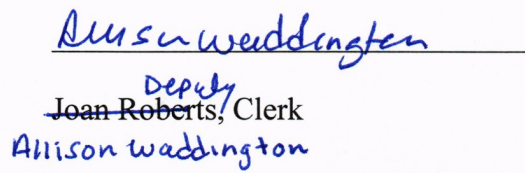 Allison Waddington
Deputy
Joan Roberts, Clerk
Allison Waddington